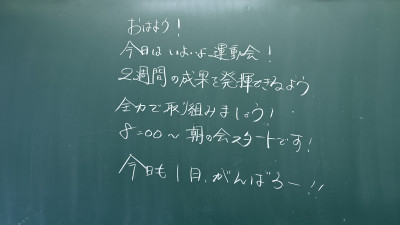 おはよう!
今日はいよいよ運動会!
2週間の成果を発揮できるよう
全力で取り組みましょう!
8:00～朝の会スタートです!
今日も1日、がんばろー!!